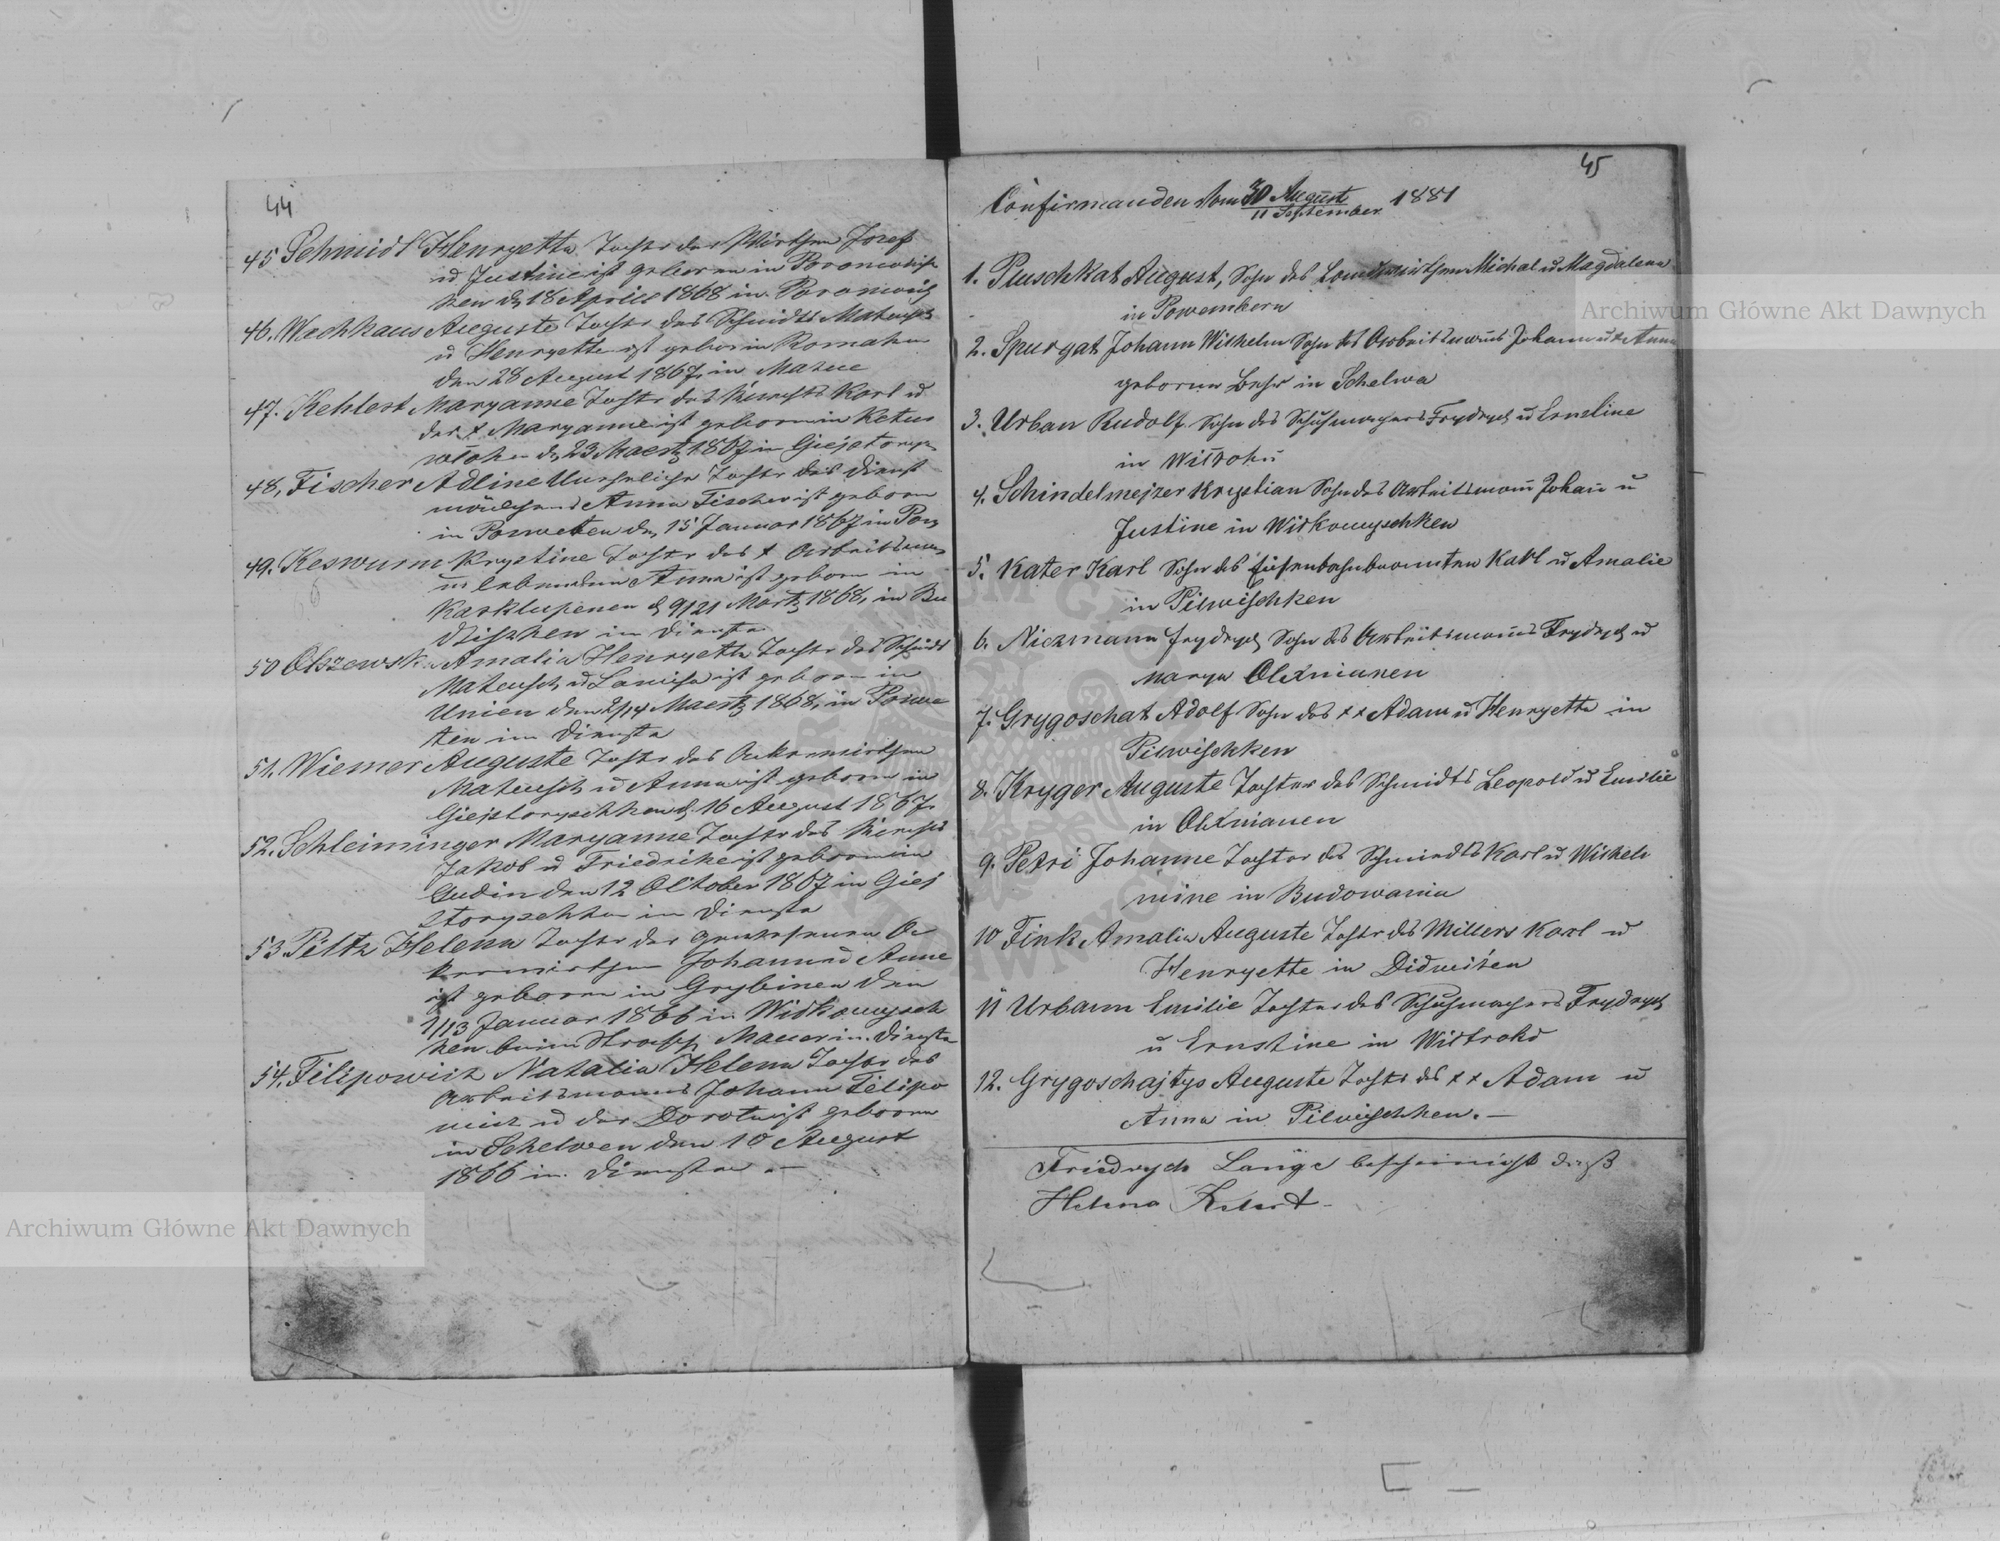 44
45 Schmidt Henryetta Tochter des Wirthen Josef
u Justine ist geboren in
ken d 18 Aprill 1868 in
46. Wachhaus Auguste Tochter des Schmidts Mateusch
u Henryette ist geboren in Romahn
den 28 August 1867, in
47. Kehlert Maryanne Tochter des Knechts Karl u
der + Maryanne ist geboren in
d 23 Maertz 1867 in
48, Fischer Adline Uneheliche Tochter des Dienst
mädchens Anna Fischer ist geboren
in Posweten d, 15 Januar 1867 in
49. Keswurm Krystine Tochter des + Arbeitsman
u lebenden Anna ist geboren in
Kasklupenen d 9/21 Martz 1868, in Bu
dziszken im Dienste
50 Olszewska Amalia Henryetta Tochter des Schmidt
Mateusch u Louisa ist geboren in
Unien den 2/14 Maertz 1868, in Poswe
ten im Dienste
51. Wiemer Auguste Tochter des Ackerwirthen
Mateusch u Anna ist geboren in
Giejstoryschken d. 16 August 1867.
52. Schleiminger Maryanne Tochter des Knechts
Jakob u Friedrike ist geboren in
Gudin den 12 October 1867 in Giej
storyschken im Dienste
53. Peltz Helena Tochter des gewesenen Ac
kerwirthen Johann u Anne
ist geboren in Grybinen den
1/13 Januar 1866 in Wilkowysch
ken beim Maurer in Dienste
54. Filipowicz Natalia Helena Tochter des
Arbeitsmanns Johann Filipo
wicz u der Dorota ist geboren
in Schelwen den 10 August
1866 im Dienste. —
45
Confirmanden Vom 30 August 1881
11 September
1. Pluschkat August, Sohn des Landwirthen Michal u Magdalena
in Powembern
2. Spurgat Johann Wilhelm Sohn des Arbeitsmans Johann u Anna
geborne in Schelwa
3. Urban Rudolf Sohn des Schuhmachers Frydrych u Erneline
in
4. Schindelmejzer Krystian Sohn des Arbeitsmann Johañ u
Justine in Wilkowyschken
5. Kater Karl Sohn des Eisenbahnbeamten Karl u Amalie
in Pilwischken
6. Nickmann Frydrych Sohn des Arbeitsmanns Frydrych u
Marya
7. Grygoschat Adolf Sohn des ++ Adam u Henryetta in
Pilwischken
8. Kryger Auguste Tochter des Schmidts Leopold u Emilie
in
9. Petri Johanne Tochter des Schmiedts Karl u Wilhel
mine in Budowania
10 Fink Amalia Auguste Tochter des Millers Karl u
Henryette in Didweiten
11 Urbann Emilie Tochter des Schuhmachers Frydrych
u Ernstine in
12. Grygoschajtys Auguste Tochter des ++ Adam u
Anna in Pilwischken. —
Friedrych Lange bescheinigt daß
Helena
Archiwum Główne Akt Dawnych
Archiwum Główne Akt Dawnych